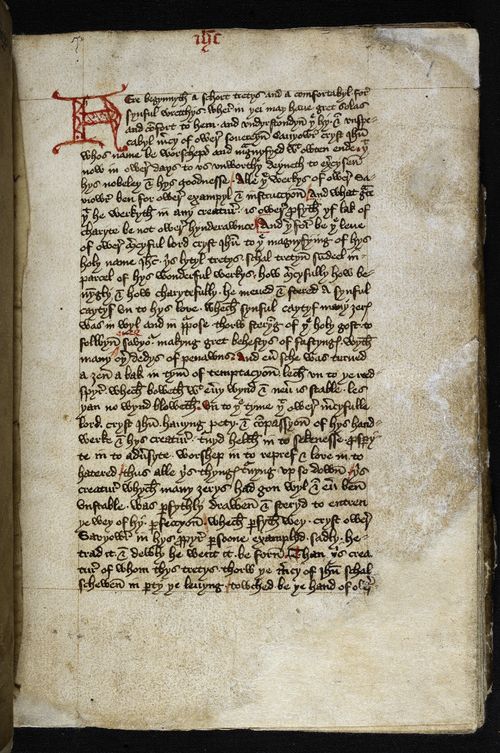 ihc
Here begynnyth a schort tretys and a comfortabyl for
synful wrecchys. wher in yei may haue gret solas
and cōfort to hem. and vndyrstondyn yͤ hy. & vnspe-
cabyl mcy of ower souereyn Sauyowr cryst ihu
whos name be worschepd and magnyfyed wt owten ende yt
now in ower days to vs vnworthy deyneth to exercysen
hys nobeley & hys goodnesse. Alle yͤ werkys of ower Sa
viowr ben for ower exampyl & instruccyon. And what gce
yt he werkyth in any creatur. is ower profyth yf lak of
charyte be not ower hynderawnce. And yfor be yͤ leue
of ower mcyful lord cryst ihu to yͤ magnyfying of hys
holy name ihc. yis lytyl tretys. schal tretyn sūdeel in
parcel of hys wonderful werkys. how mcyfully how be-
nyngly & how charytefully. he meued & stered a synful
caytyf vn to hys loue. whech synful caytyf many ȝerys
was in wyl and in prpose. thorw steryng of yͤ holy gost to
folwyn oure sauyor. makyng gret behestys of fastyngys. wyth
many oyr dedys of penawns. And eur sche was turned
a ȝen a bak in tym of temptacyon. lech vn to ye reed
spyr. whech boweth wt eury wynd & neur is stable. les
yan no wynd bloweth. vn to yͤ tyme yt ower mrcyfulle
lord. cryst ihu. hauyng pety. & cōpassyon of hys hand-
werke & hys creatur. turnyd helth in to sekenesse. prospy
te in to aduersyte. worshep in to repref & loue in to
hatered. thus alle yis thyngys turnyng vp so down. yis
creatur whych many ȝerys had gon wyl & eur ben
vnstable. was prfythly drawen & steryd to entren
ye wey of hy prfeccyon. whech prfyth wey. cryst ower
Savyowr in hys propyr persoone examplyd. sadly. he
trad it & dewly he went it be forn. Than yis crea
tur of whom thys tretys. thorw ye mrcy of ihu schal
schewen in prty ye leuyng. towched be ye hand of owyr